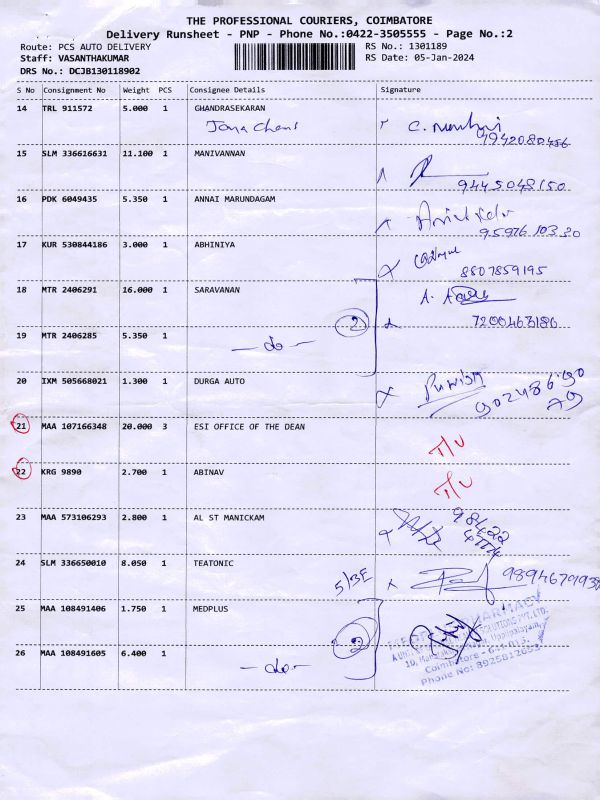 THE PROFESSIONAL COURIERS, COIMBATORE
Delivery Runsheet - PNP - Phone No.:0422-3505555 - Page No.:2
Route: PCS AUTO DELIVERY RS No.: 1301189
Staff: VASANTHAKUMAR RS Date: 05-Jan-2024
DRS No.: DCJB130118902
S No Consignment No Weight PCS Consignee Details Signature
14 TRL 911572 5.000 1 GHANDRASEKARAN
9942080456
15 SLM 336616631 11.100 1 MANIVANNAN
9445048150
16 PDK 6049435 5.350 1 ANNAI MARUNDAGAM
95976 10320
17 KUR 530844186 3.000 1 ABHINIYA
8807859195
18 MTR 2406291 16.000 1 SARAVANAN
2 7200463186
19 MTR 2406285 5.350 1
-do-
20 IXM 505668021 1.300 1 DURGA AUTO
90248690
79
21 MAA 107166348 20.000 3 ESI OFFICE OF THE DEAN
T/U
22 KRG 9890 2.700 1 ABINAV
T/U
23 MAA 573106293 2.800 1 AL ST MANICKAM
98422
24 SLM 336650010 8.050 1 TEATONIC
5/3E
25 MAA 108491406 1.750 1 MEDPLUS
2
26 MAA 108491605 6.400 1
-do-
Coimbatore - 641 015.